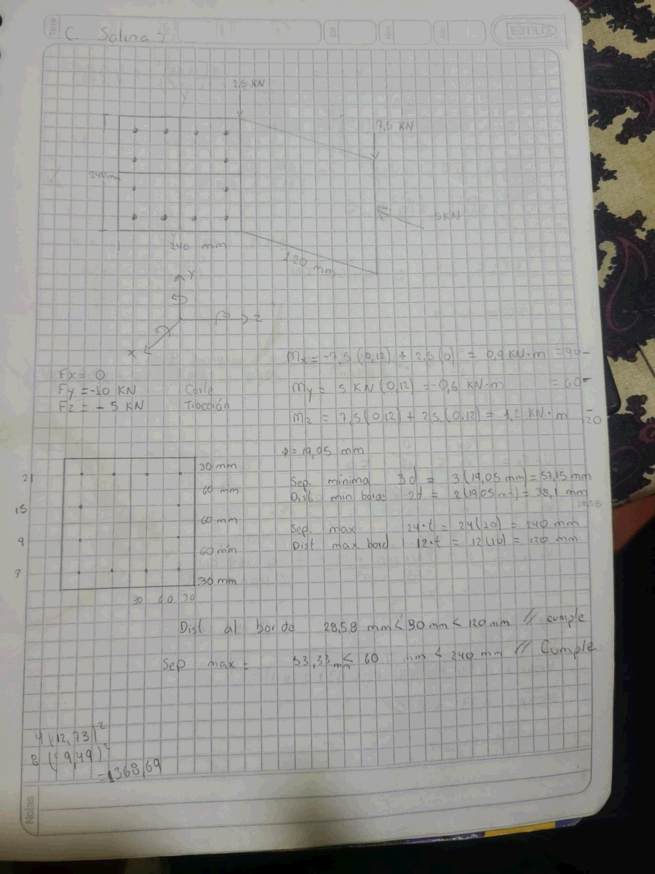 C. Salinas
2,5 KN
7,5 KN
5KN
240mm
240 mm
120 mm
Y
Z
X
Mx = -7,5 (0,12) + 2,5 (0) = 0,9 KN·m = 90
Fx = 0
Fy = -10 KN Corte
My = 5 KN (0,12) = -0,6 KN·m = 60
Fz = -5 KN Tracción
Mz = 7,5 (0,12) + 2,5 (0,12) = 1,2 KN·m
φ = 19,05 mm
Sep. mínima 3d = 3(19,05 mm) = 57,15 mm
Dist min borde 2d = 2(19,05 mm) = 38,1 mm
Sep. max 24·t = 24(10) = 240 mm
Dist max bord 12·t = 12(10) = 120 mm
21
15
9
3
30 mm
60 mm
60 mm
60 mm
30 mm
30 60 30
Dist al borde 28,58 mm < 30 mm < 120 mm // cumple
Sep max = 53,33 mm ≤ 60 mm < 240 mm // Cumple
4 (12,73)²
8 (9,49)²
= 1368,69
Notas